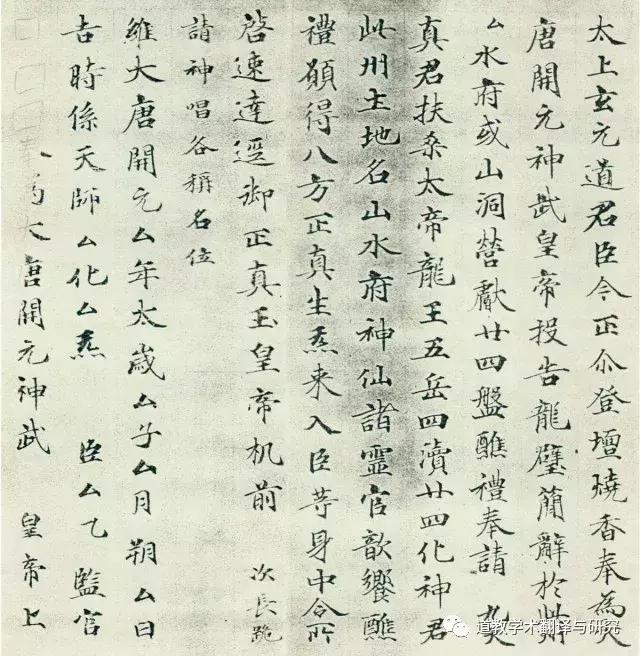 太上玄元道君臣今正尒登壇燒香奉為大
唐開元神武皇帝投告龍璧簡辭於此
厶水府或山洞營獻廿四盤醮禮奉請九天
真君扶桒太帝龍王五岳四瀆廿四化神君
此州土地名山水府神仙諸靈官歆饗醮
禮願得八方正真生炁来入臣等身中令所
啓速達逕御正真玉皇帝机前 次長跪
請神唱各稱名位
維大唐開元厶年太歲厶子厶月朔厶日
吉時係天師厶化厶炁 臣厶乙監官
為大唐開元神武 皇帝上
道教学术翻译与研究